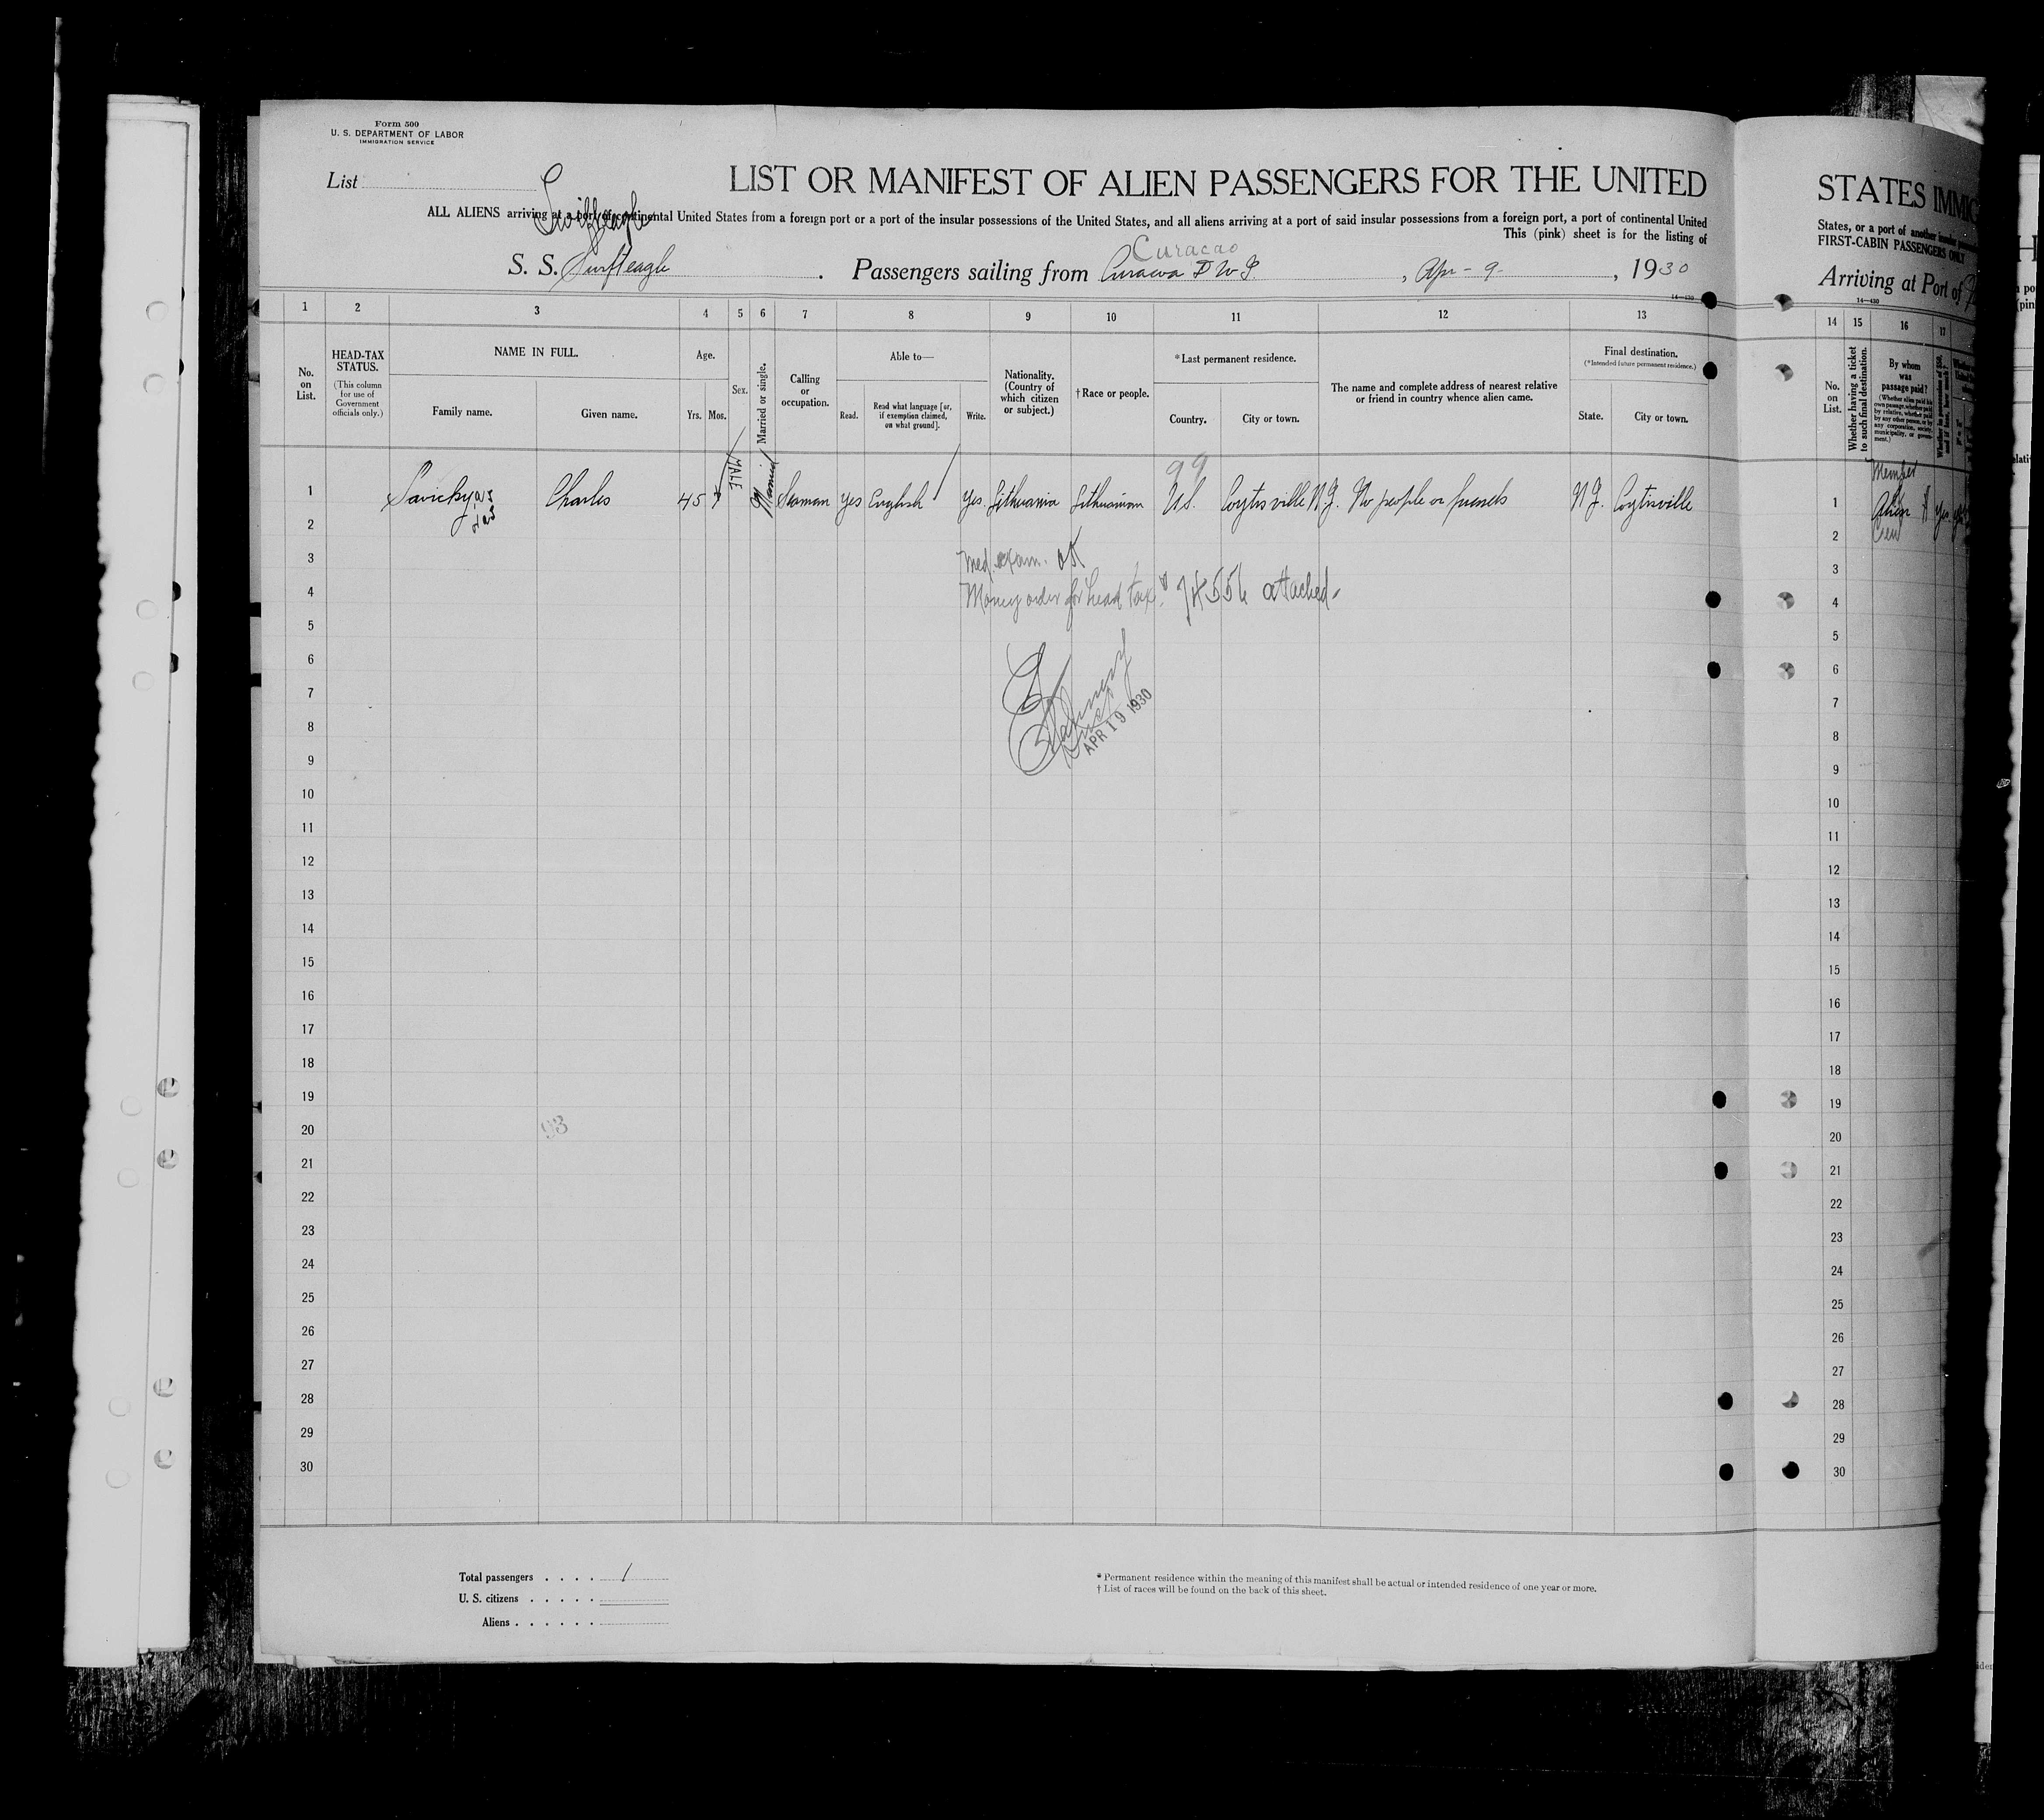 Form 500
U. S. DEPARTMENT OF LABOR
IMMIGRATION SERVICE
List
LIST OR MANIFEST OF ALIEN PASSENGERS FOR THE UNITED
STATES IMMIG
Swifteagle
ALL ALIENS arriving at a port of continental United States from a foreign port or a port of the insular possessions of the United States, and all aliens arriving at a port of said insular possessions from a foreign port, a port of continental United
States, or a port of another insular
This (pink) sheet is for the listing of
FIRST-CABIN PASSENGERS ONLY
Curacao
S. S. Swifteagle . Passengers sailing from Curacoa D W I , Apr - 9 - , 1930
Arriving at Port of
14—430
14—430
1 2 3 4 5 6 7 8 9 10 11 12 13
14 15 16 17
No. on List.
HEAD-TAX STATUS.
(This column for use of Government officials only.)
NAME IN FULL.
Family name.
Given name.
Age.
Yrs. Mos.
Sex.
Married or single.
Calling or occupation.
Able to—
Read.
Read what language [or, if exemption claimed, on what ground].
Write.
Nationality. (Country of which citizen or subject.)
† Race or people.
*Last permanent residence.
Country.
City or town.
The name and complete address of nearest relative or friend in country whence alien came.
Final destination.
(*Intended future permanent residence.)
State.
City or town.
No. on List.
Whether having a ticket to such final destination.
By whom was passage paid?
(Whether alien paid his own passage, whether paid by relative, whether paid by any other person, or by any corporation, society, municipality, or government.)
99
Member
1 Savickyas Charles 45 MALE Married Seaman yes English yes Lithuania Lithuanian U.S. Coytisville N.J. No people or friends N J. Coytisville
1 Alien yes
Crew
2
3
Med. exam. OK
4
Money order for head tax # attached -
5
6
7
APR 10 1930
8
9
10
11
12
13
14
15
16
17
18
19
93
20
21
22
23
24
25
26
27
28
29
30
2
3
4
5
6
7
8
9
10
11
12
13
14
15
16
17
18
19
20
21
22
23
24
25
26
27
28
29
30
Total passengers . . . . 1
U. S. citizens . . . . .
Aliens . . . . . .
* Permanent residence within the meaning of this manifest shall be actual or intended residence of one year or more.
† List of races will be found on the back of this sheet.